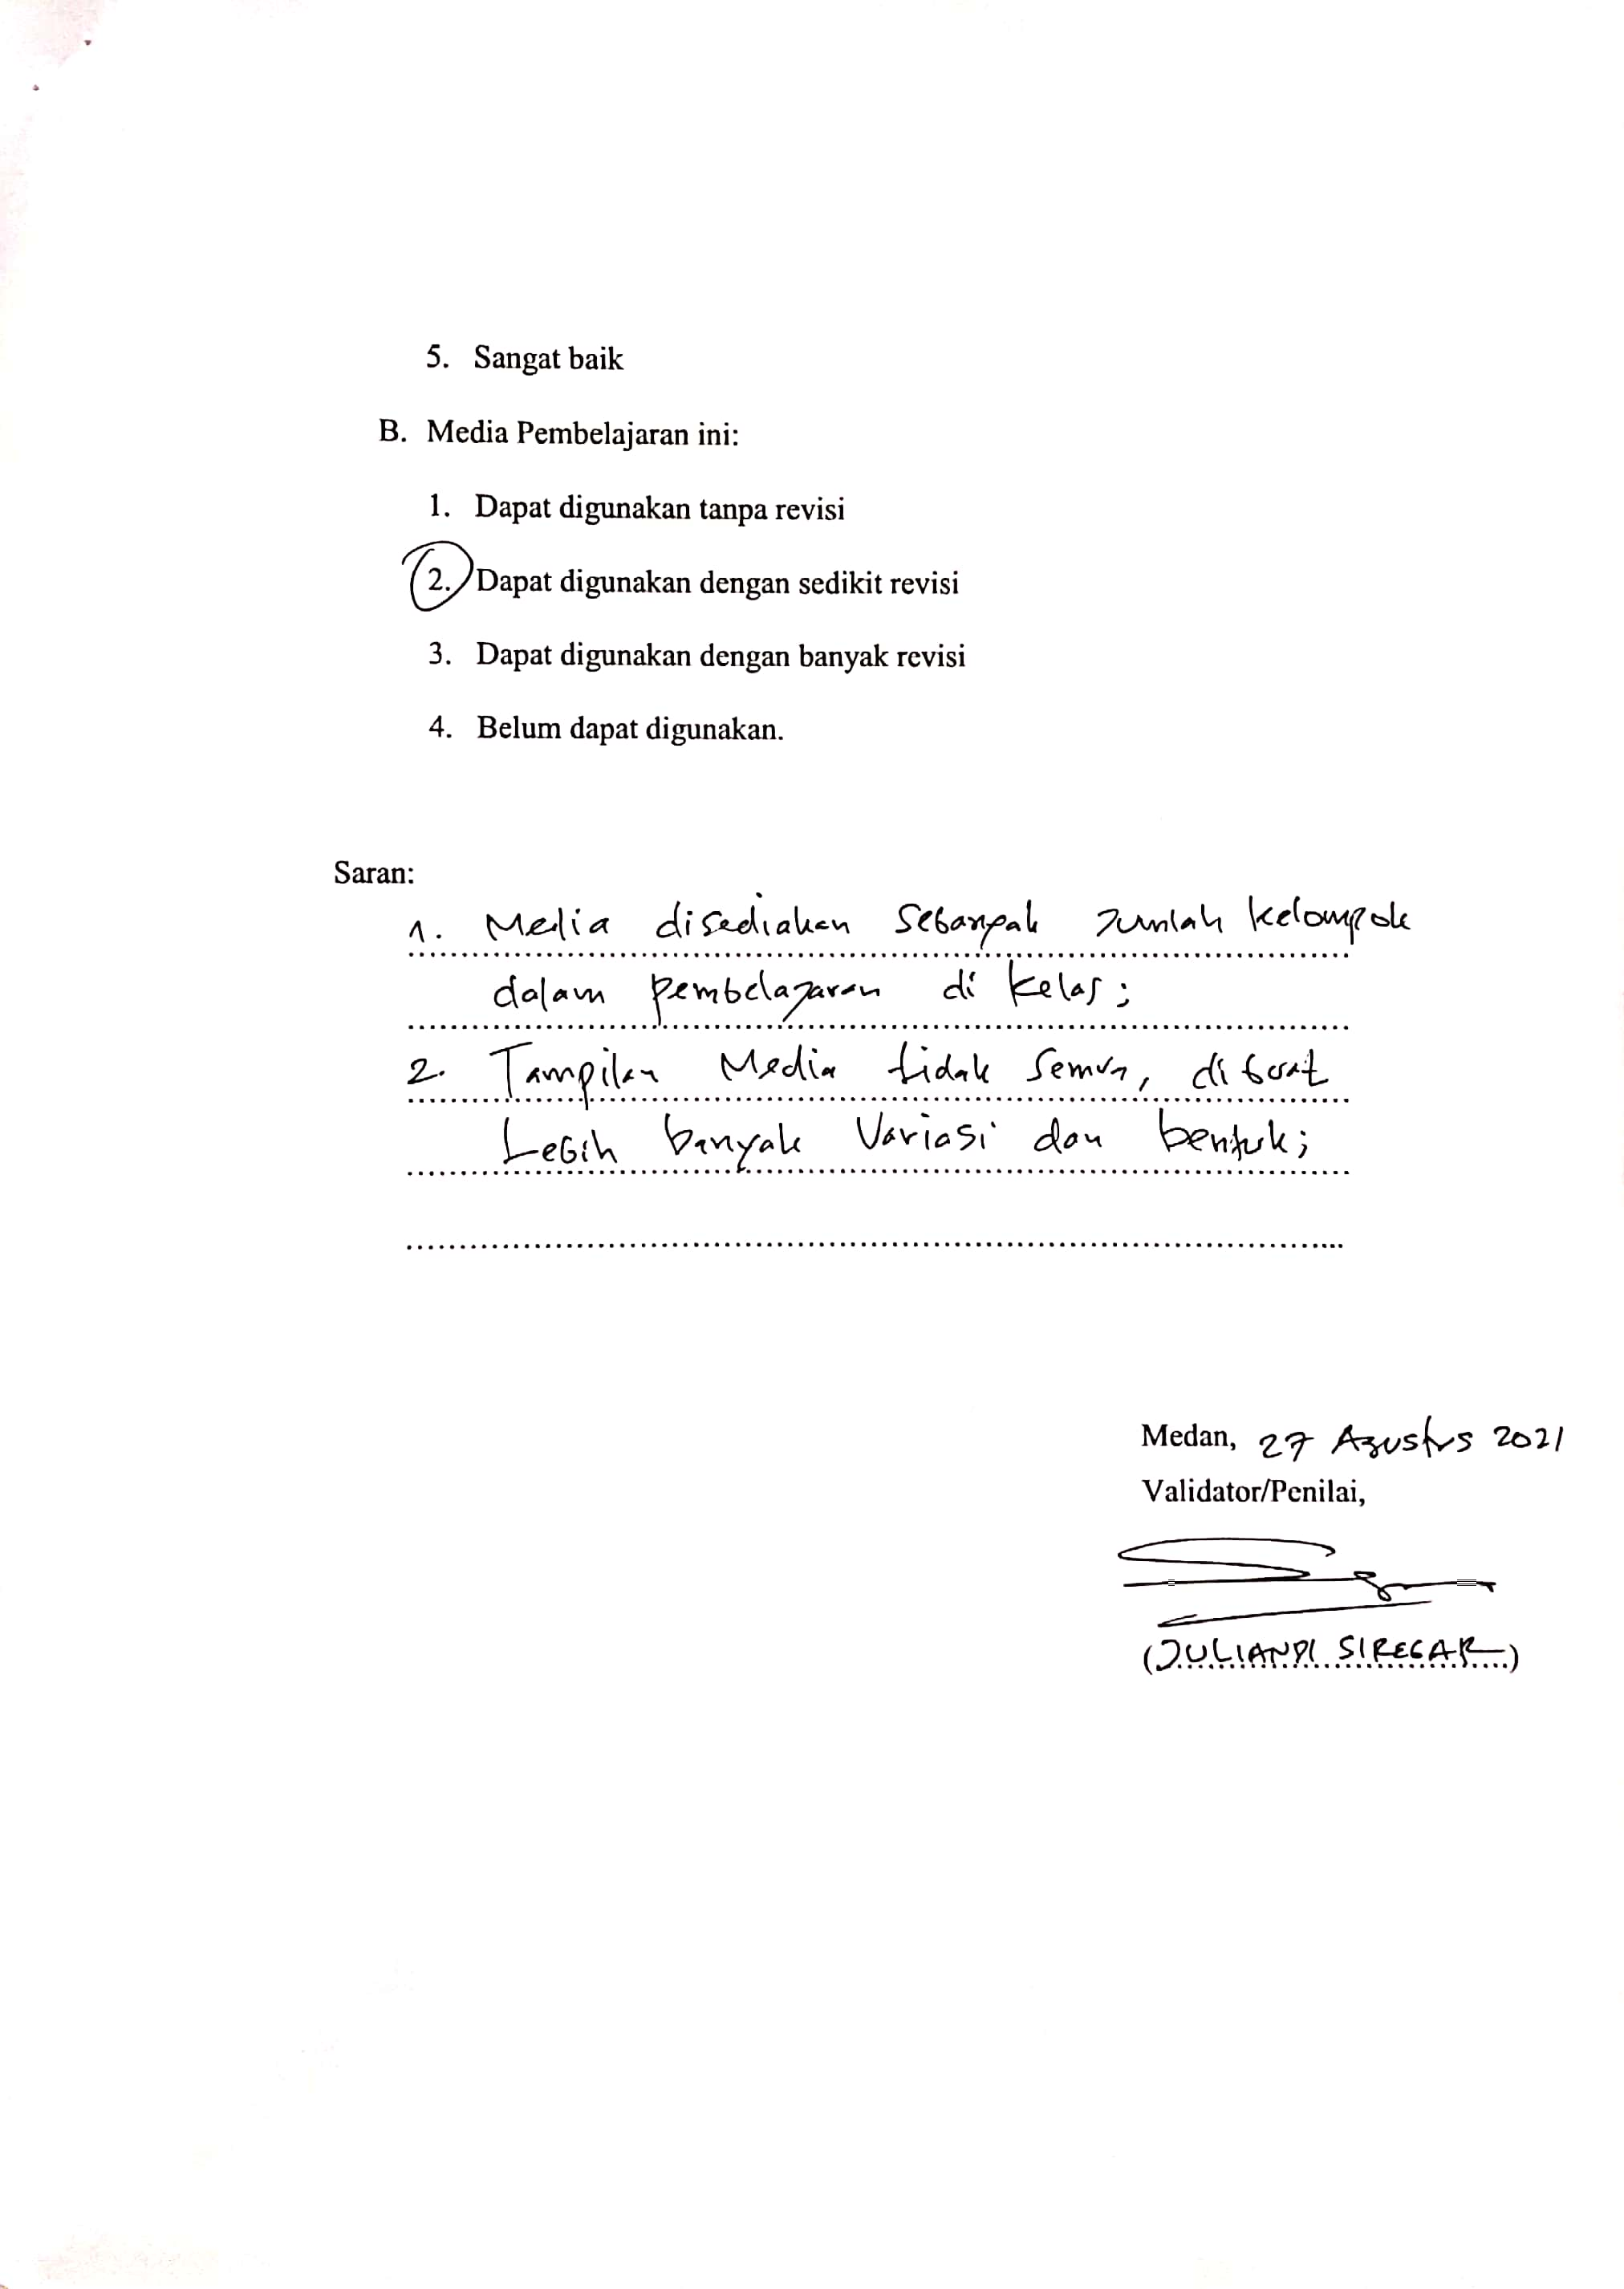 5. Sangat baik
B. Media Pembelajaran ini:
1. Dapat digunakan tanpa revisi
2. Dapat digunakan dengan sedikit revisi
3. Dapat digunakan dengan banyak revisi
4. Belum dapat digunakan.
Saran:
1. Media disediakan sebanyak Jumlah kelompok
dalam pembelajaran di kelas;
2. Tampilan Media tidak semua, dibuat
Lebih banyak Variasi dan bentuk;
Medan, 27 Agustus 2021
Validator/Penilai,
(JULIANDI SIREGAR)